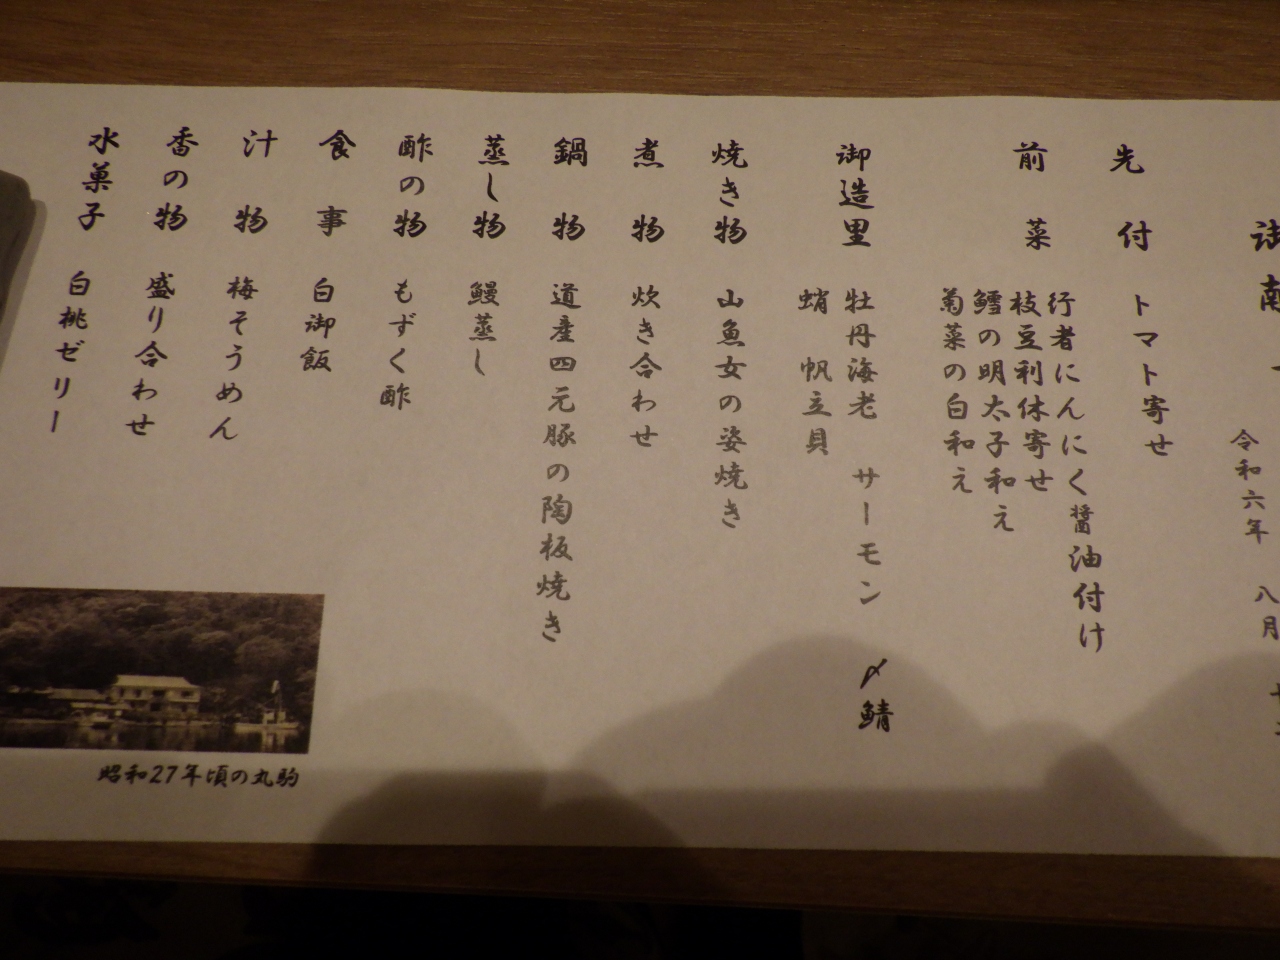 令和六年 八月
先付 トマト寄せ
前菜 行者にんにく醤油付け
枝豆利休寄せ
鱈の明太子和え
菊菜の白和え
御造里 牡丹海老 サーモン 〆鯖
蛸 帆立貝
焼き物 山魚女の姿焼き
煮物 炊き合わせ
鍋物 道産四元豚の陶板焼き
蒸し物 鰻蒸し
酢の物 もずく酢
食事 白御飯
汁物 梅そうめん
香の物 盛り合わせ
水菓子 白桃ゼリー
昭和27年頃の丸駒